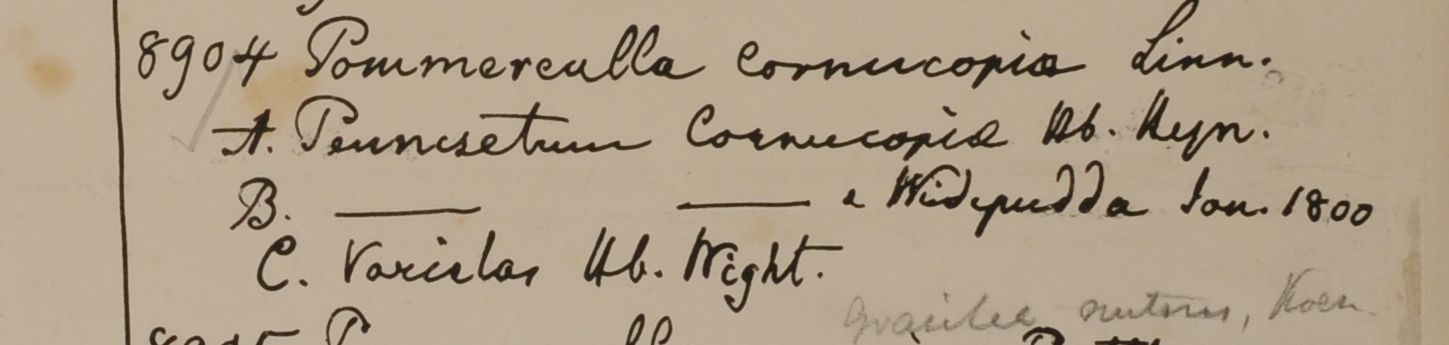 8904 Pommereulla Cornucopiæ Linn.
A. Pennisetum Cornucopiæ Hb. Heyn.
B. —— —— e Widepudda Jan. 1800
C. Varietas Hb. Wight.
nutans, Koen.